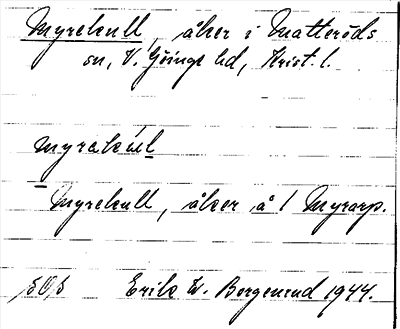 Myrekull, åker i Matteröds
sn, V. Göinge hd, Krist. l.
Myrakúl
Myrekull, åker å 1 Myrarp.
Erik W. Bergenrud 1944.